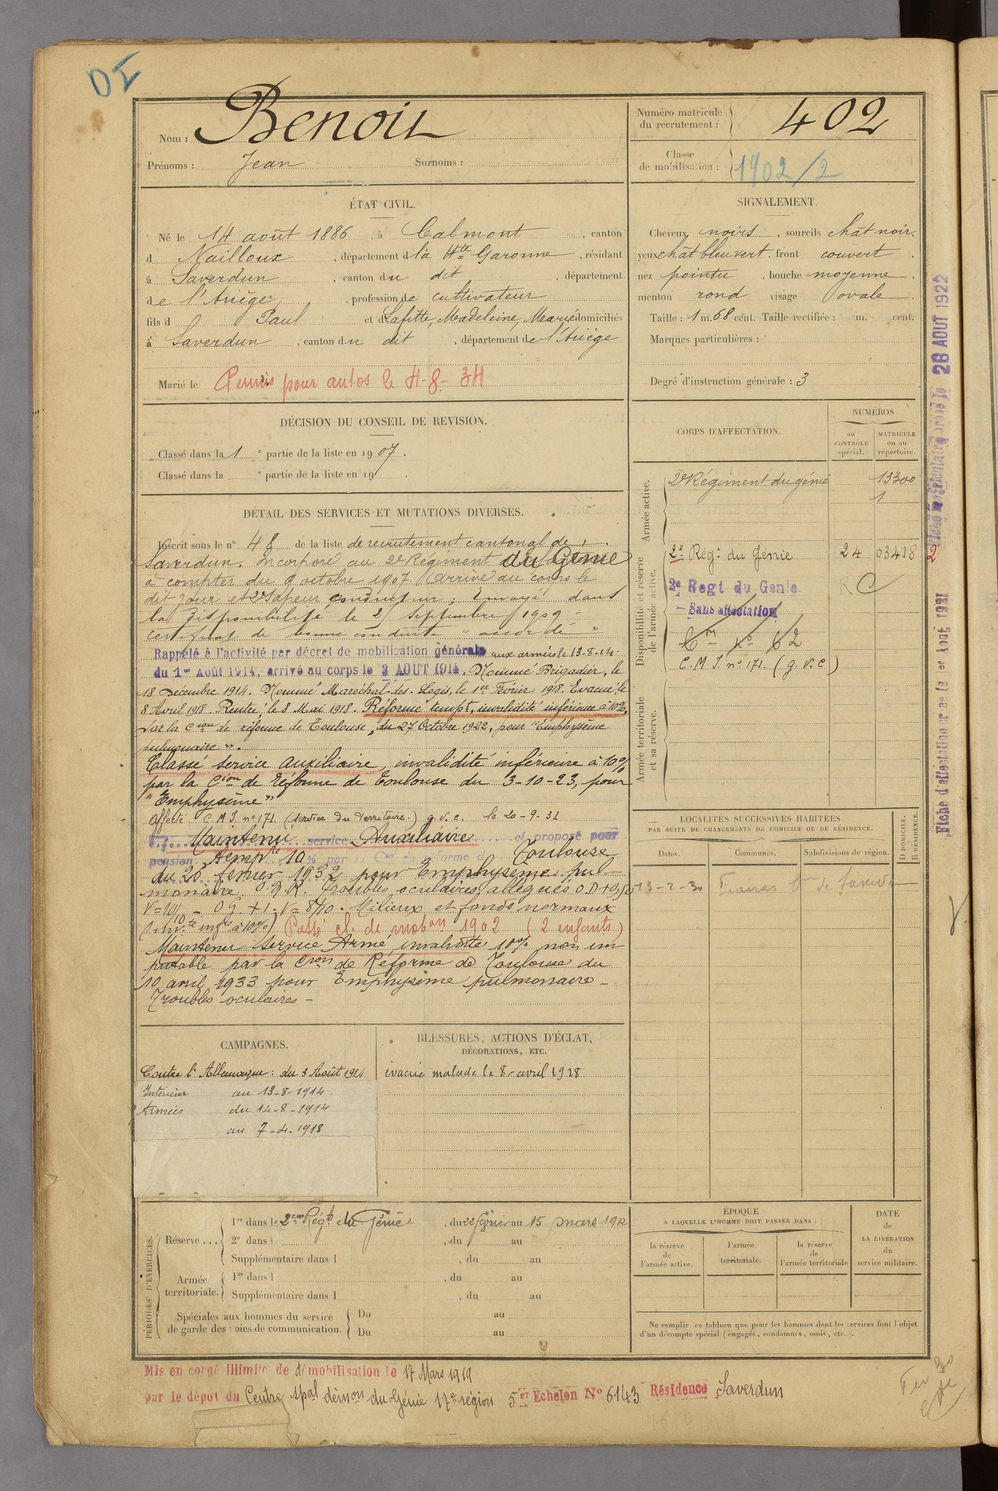 DI
Nom : Benoit
Prénoms : Jean Surnoms :
Numéro matricule du recrutement : 402
Classe de mobilisation : 1902/2
ÉTAT CIVIL.
Né le 14 août 1886, à Calmont, canton
d Nailloux, département d la Hte Garonne, résidant
à Saverdun, canton du dit, département
de l'Ariège, profession de cultivateur
fils d Paul et d Lafitte, Madeleine, Marie domiciliés
à Saverdun, canton du dit, département de l'Ariège
Marié le Permis pour autos le 4-8-34
SIGNALEMENT.
Cheveux noirs, sourcils chât noir.
yeux chât bleu vert, front couvert
nez pointu, bouche moyenne
menton rond visage ovale.
Taille : 1 m. 68 cent. Taille rectifiée : m. cent.
Marques particulières :
Degré d'instruction générale : 3
DÉCISION DU CONSEIL DE REVISION.
Classé dans la 1e partie de la liste en 1907.
Classé dans la e partie de la liste en 19
DÉTAIL DES SERVICES ET MUTATIONS DIVERSES.
Inscrit sous le n° 48 de la liste de recrutement cantonal de
Saverdun. Incorporé au 2e Régiment du Génie
à compter du 9 octobre 1907. Arrivé au corps le
dit jour et 2e Sapeur conducteur. Envoyé dans
la disponibilité le 25 Septembre 1909 -
Certificat de bonne conduite "accordé"
Rappelé à l'activité par décret de mobilisation générale aux armées le 13-8-14.
du 1er Août 1914, arrivé au corps le 3 AOUT 1914. Nommé Brigadier, le
18 Décembre 1914. Nommé Maréchal-des-Logis, le 1er Février 1918. Evacué le
8 Avril 1918. Rentré, le 8 Mai 1918. Réformé tempre, invalidité inférieure à 10%,
par la Cion de réforme de Toulouse, du 27 Octobre 1922, pour "Emphysème
pulmonaire".
Classé service auxiliaire, invalidité inférieure à 10%
par la Cion de Réforme de Toulouse du 3-10-23, pour
"Emphysème"
Affecté C.M.I. n° 171. (Service du Territoire.) g.v.c. le 20-9-31
Maintenu service Auxiliaire et proposé pour
pension temp 10 % par la Con de réforme de Toulouse
du 20 février 1932 pour Emphysème pul-
monaire. O.G.R. Troubles oculaires allégués O.D +0,50
V=10/10 - OG +1 - V=8/10. Milieux et fonds normaux
Passé cl. de mobon 1902 (2 enfants)
Maintenu Service Armé invalidité 10% non im
putable par la Cion de Réforme de Toulouse du
10 avril 1933 pour Emphysème pulmonaire -
Troubles oculaires -
CORPS D'AFFECTATION.
NUMÉROS
au CONTRÔLE spécial.
MATRICULE ou au répertoire.
Armée active.
2e Régiment du génie 13300
1
Disponibilité et réserve de l'armée active.
2e Rég. du Génie 24 03418 2
2e Regt du Genie R C
- Sans affectation
C.M. n° 62
C.M.I. n° 171. (g.v.c)
Armée territoriale et sa réserve.
LOCALITÉS SUCCESSIVES HABITÉES
PAR SUITE DE CHANGEMENTS DE DOMICILE OU DE RÉSIDENCE.
Dates. Communes. Subdivisions de région. D DOMICILE. R RÉSIDENCE.
13-2-30
26 AOUT 1922
CAMPAGNES.
Contre l'Allemagne : du 3 Août 1914
Intérieur au 13-8-1914
Armées du 14-8-1914
au 7-4-1918
BLESSURES, ACTIONS D'ÉCLAT,
DÉCORATIONS, ETC.
évacué malade le 8 avril 1918
PÉRIODES D'EXERCICES.
Réserve ...
1re dans le 2eme Régt du Génie, du 22 février au 15 mars 1912
2e dans l , du au
Supplémentaire dans l , du au
Armée territoriale.
1re dans l , du au
Supplémentaire dans l , du au
Spéciales aux hommes du service de garde des voies de communication.
Du au
Du au
ÉPOQUE
A LAQUELLE L'HOMME DOIT PASSER DANS :
la réserve de l'armée active.
l'armée territoriale.
la réserve de l'armée territoriale
DATE de LA LIBÉRATION du service militaire.
Ne remplir ce tableau que pour les hommes dont les services font l'objet
d'un décompte spécial (engagés, condamnés, omis, etc.).
Mis en congé illimité de démobilisation le 17 Mars 1919
par le dépôt du Centre spal démon du Génie 17e région 5er Echelon N° 6143 Résidence Saverdun